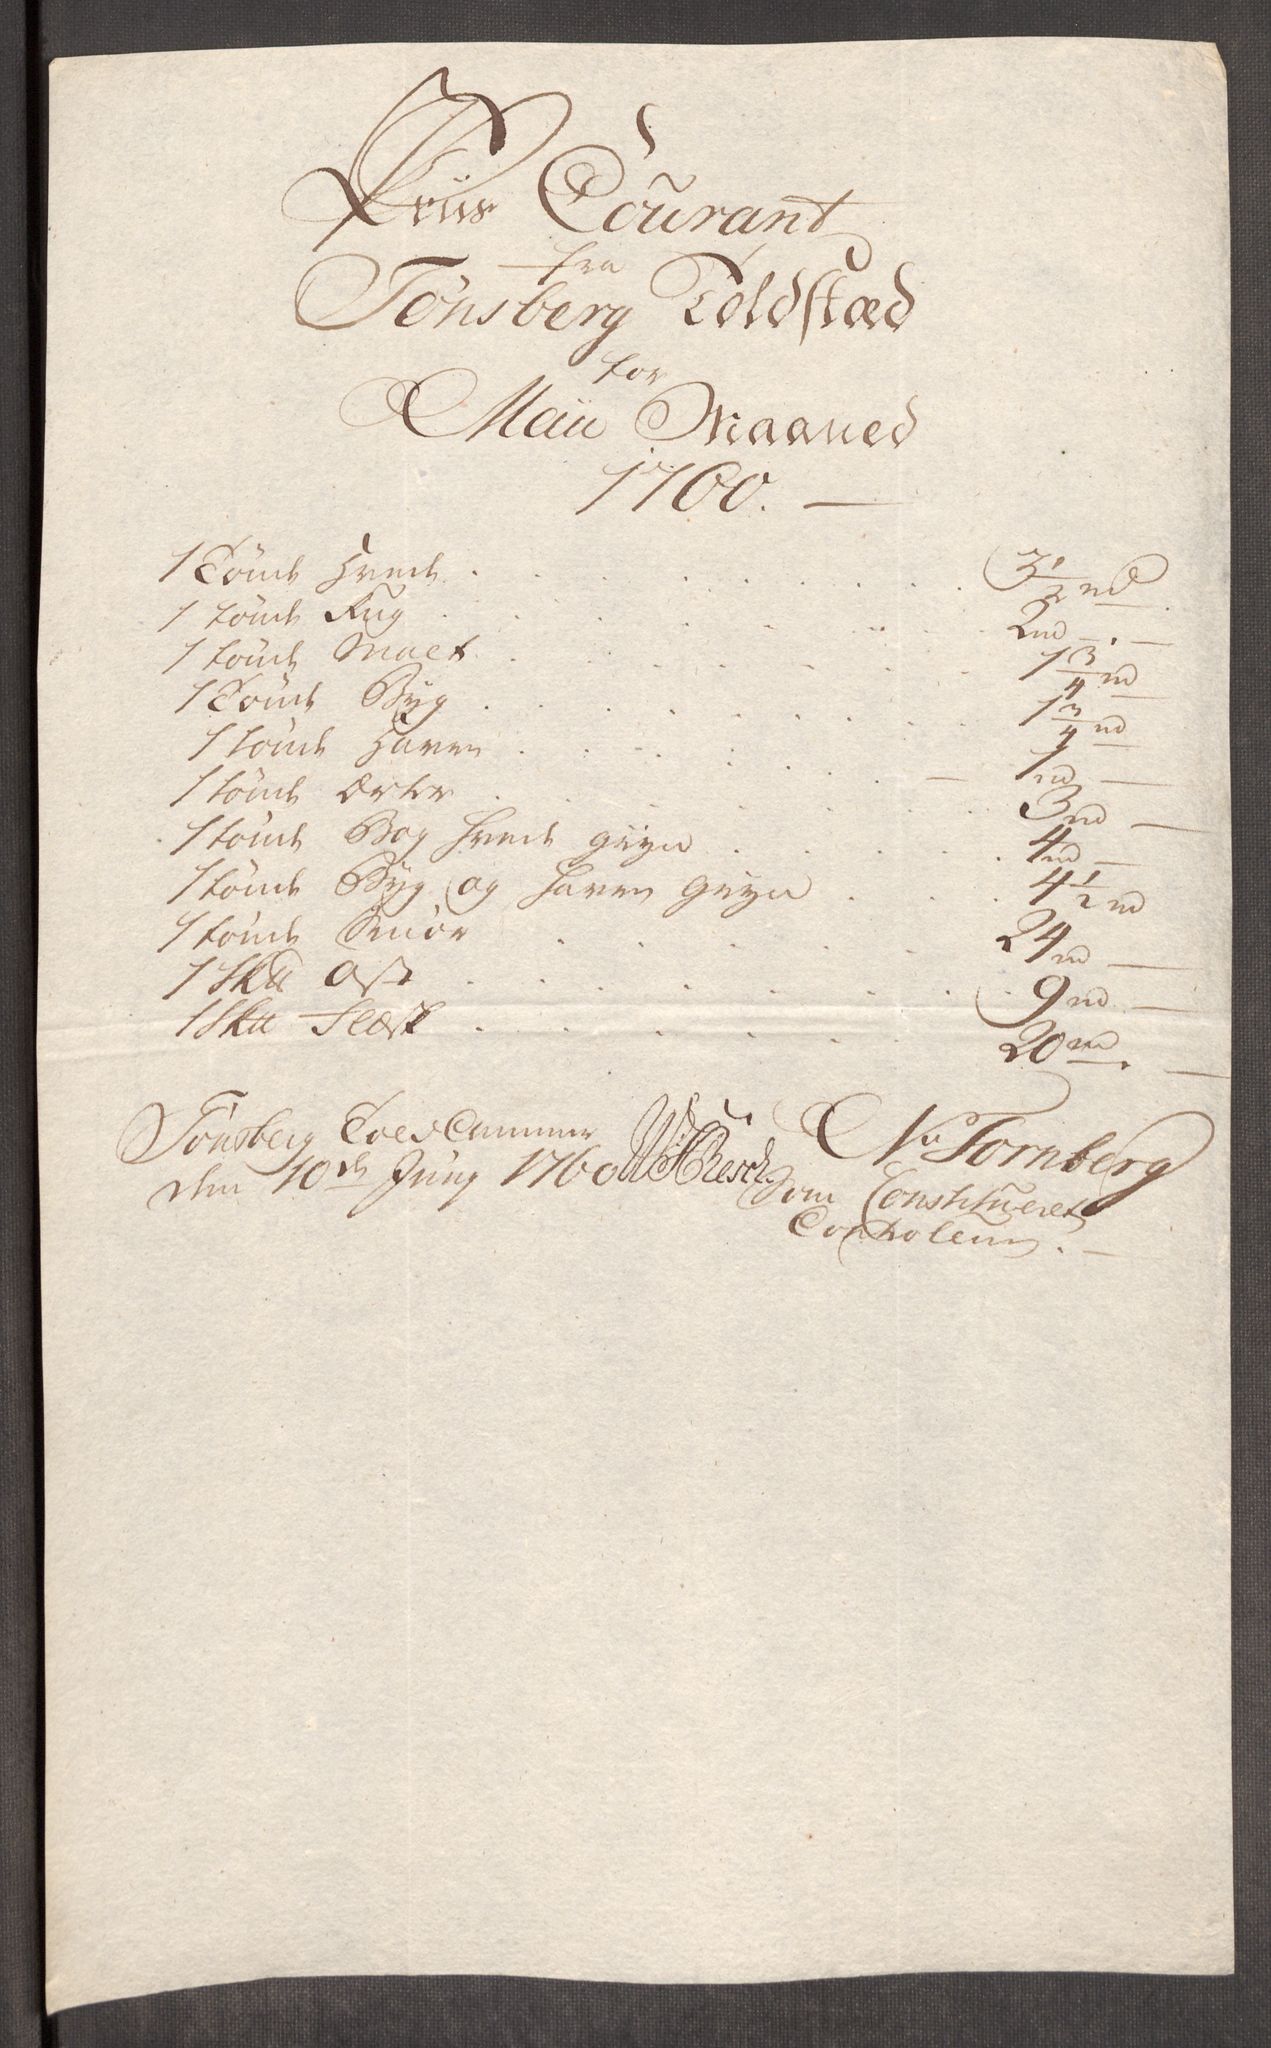 Priis Courant
fra
Tönsberg Toldstæd
for
Maii Maaned
1760. —
1 Tönde Hvede . . . . . . . . 3 1/2 rd
1 tönde Rug . . . . . . . . 2 rd —
1 tönde Malt . . . . . . . . 1 3/4 rd
1 Tönde Byg . . . . . . . . 1 3/4 rd
1 tönde Havre . . . . . . . . 1 rd —
1 tönde Erter . . . . . . . . 3 rd —
1 tönde Bog Hvede gryn . . . . . 4 rd —
1 tönde Byg og Havre Gryn . . . 4 1/2 rd
1 tönde Smör . . . . . . . 24 rd —
1 Sk℔ Ost . . . . . . . . 9 rd —
1 Sk℔ Flesk . . . . . . . 20 rd. —
Tönsberg Toldcammer
den 10de Juny 1760
Resch
Ns Tornberg
Som Constitueret
Controleur. —